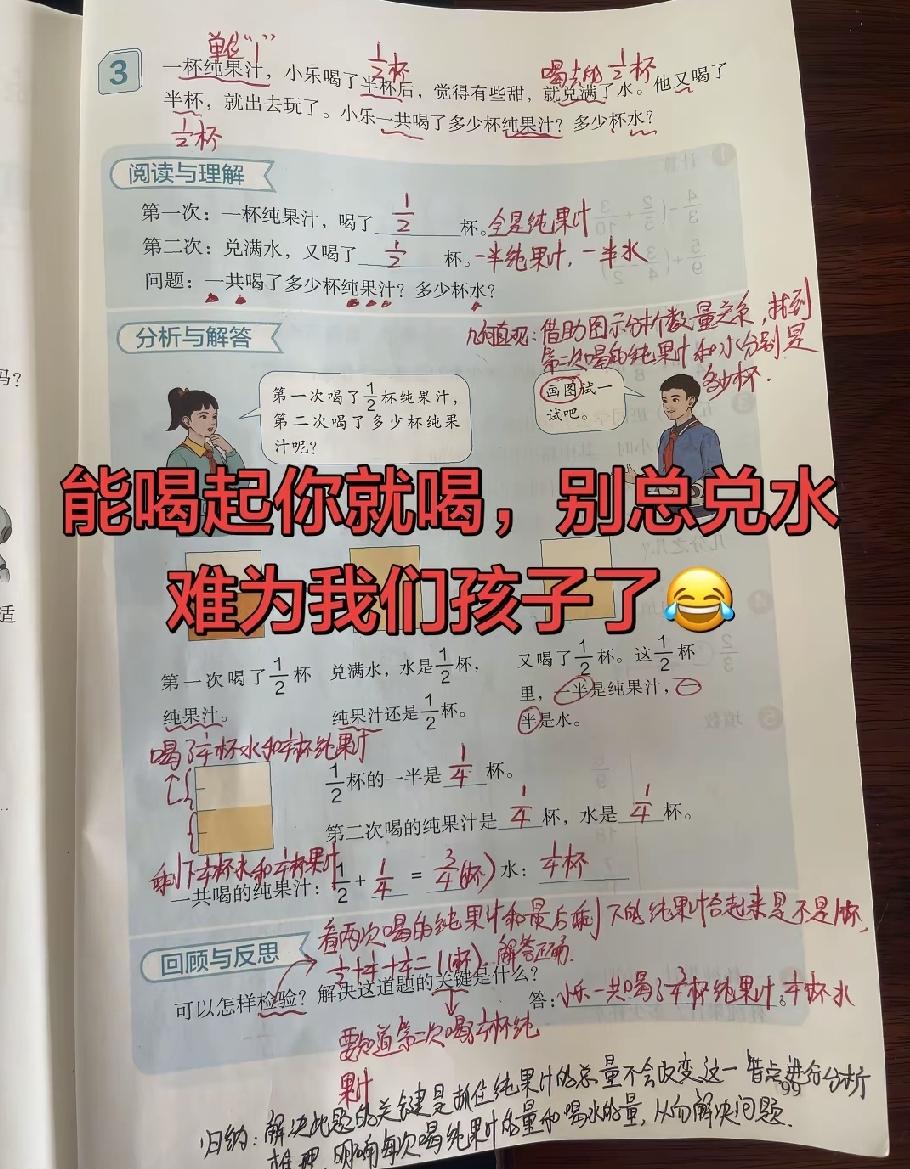 单位"1"
1/2杯
喝去的1/2杯
3
一杯纯果汁，小乐喝了半杯后，觉得有些甜，就兑满了水。他又喝了
半杯，就出去玩了。小乐一共喝了多少杯纯果汁？多少杯水？
1/2杯
阅读与理解
第一次：一杯纯果汁，喝了 1/2 杯。全是纯果汁
第二次：兑满水，又喝了 1/2 杯。一半纯果汁，一半水
问题：一共喝了多少杯纯果汁？多少杯水？
分析与解答
几何直观：借助图示分析数量关系，找到
第二次喝的纯果汁和水分别是
多少杯．
第一次喝了1/2杯纯果汁，
第二次喝了多少杯纯果
汁呢？
画图试一
试吧。
吗？
能喝起你就喝，别总兑水
难为我们孩子了😂
适
第一次喝了1/2杯
纯果汁。
兑满水，水是1/2杯，
纯果汁还是1/2杯。
又喝了1/2杯。这1/2杯
里，一半是纯果汁，一
半是水。
喝了1/4杯水和1/4杯纯果汁
1/2杯的一半是 1/4 杯。
第二次喝的纯果汁是 1/4 杯，水是 1/4 杯。
剩下1/4杯水和1/4杯果汁
一共喝的纯果汁：1/2 + 1/4 = 3/4(杯) 水：1/4杯
看两次喝的纯果汁和最后剩下的纯果汁合起来是不是1杯，
1/2+1/4+1/4=1(杯)．解答正确．
回顾与反思
可以怎样检验？解决这道题的关键是什么？
答：小乐一共喝了3/4杯纯果汁。1/4杯水
要知道第二次喝1/4杯纯
果汁
归纳：解决此题的关键是抓住纯果汁的总量不会改变这一特点进行分析
推理，明确每次喝纯果汁的量和喝水的量，从而解决问题．